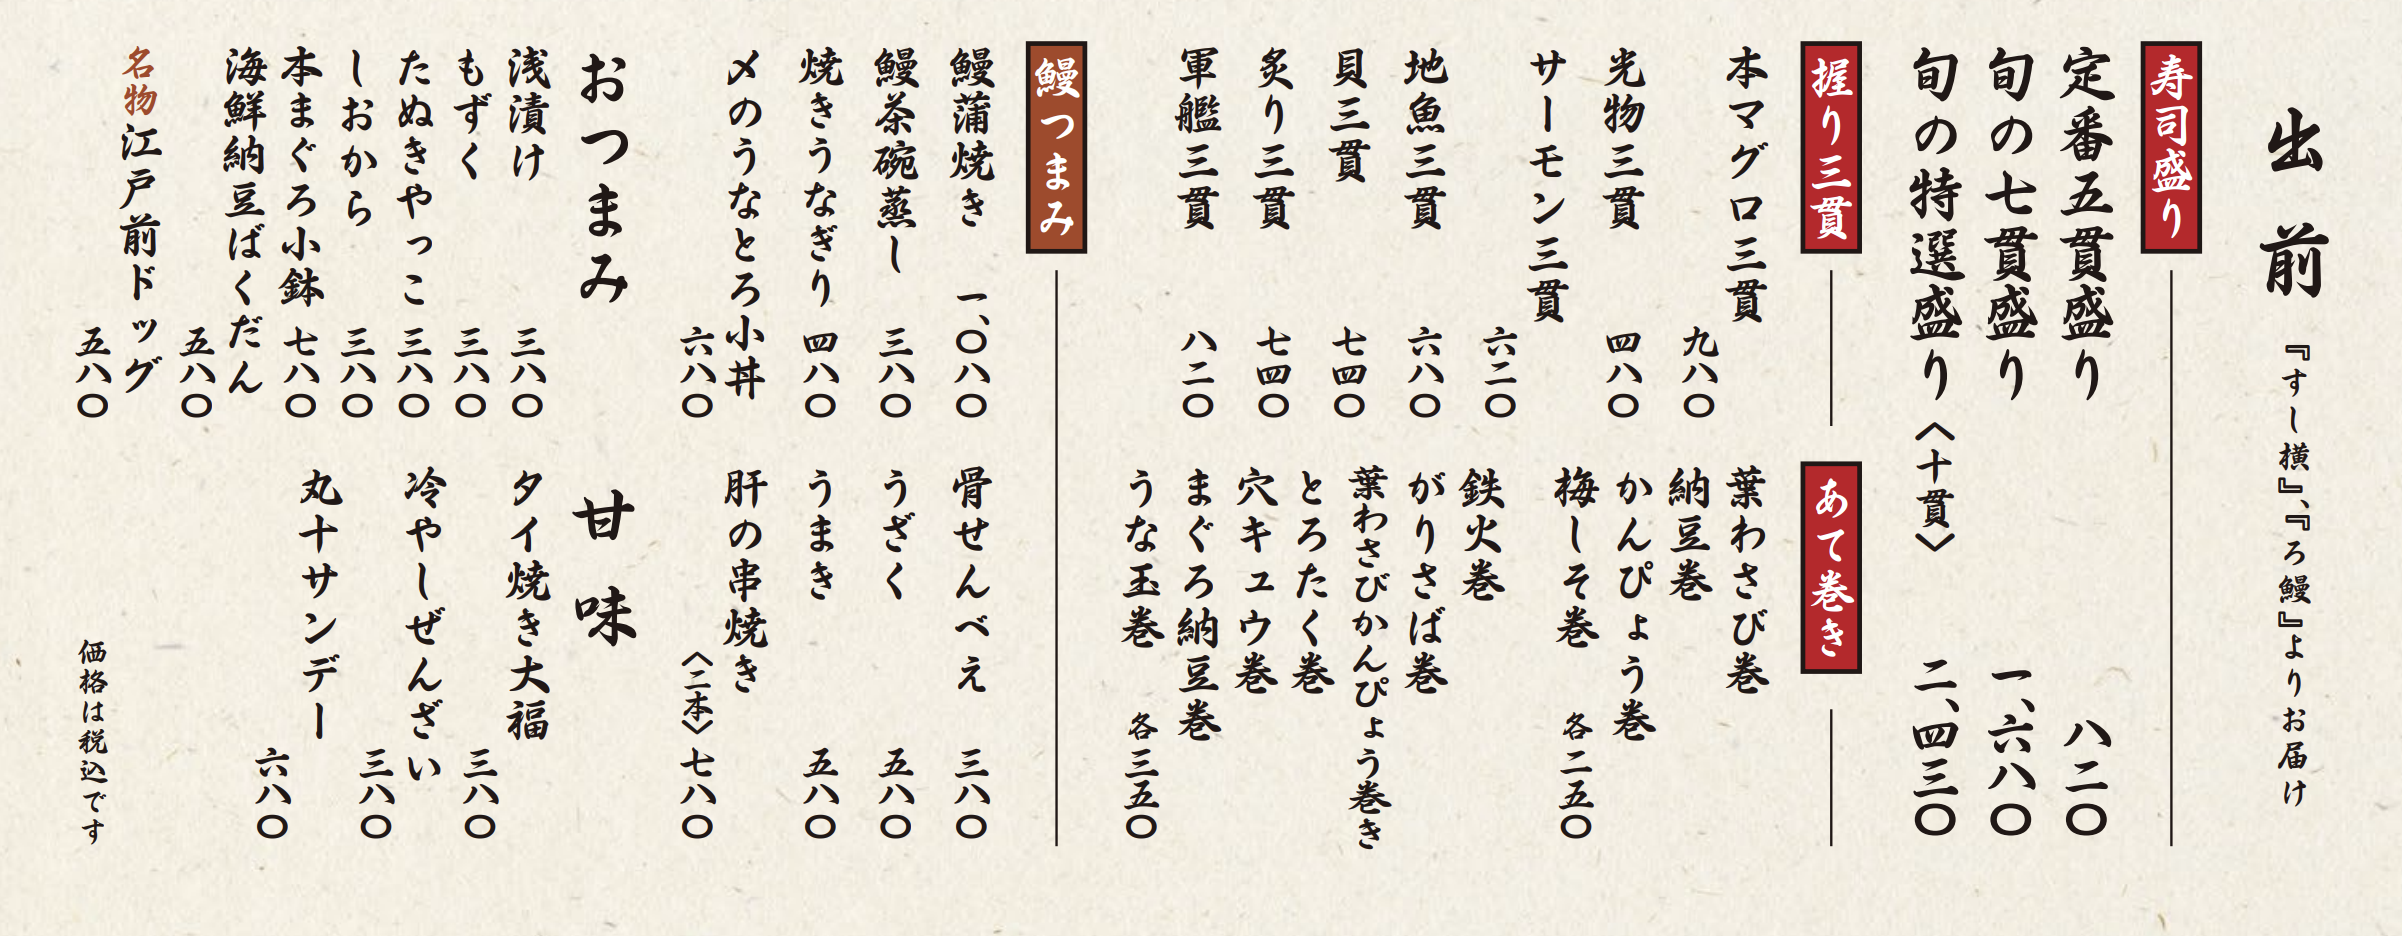 出前
『すし横』、『ろ鰻』よりお届け
寿司盛り
定番五貫盛り 八二〇
旬の七貫盛り 一、六八〇
旬の特選盛り〈十貫〉 二、四三〇
握り三貫
本マグロ三貫 九八〇
光物三貫 四八〇
サーモン三貫 六二〇
地魚三貫 六八〇
貝三貫 七四〇
炙り三貫 七四〇
軍艦三貫 八二〇
あて巻き
葉わさび巻
納豆巻
かんぴょう巻
梅しそ巻 各二五〇
鉄火巻
がりさば巻
葉わさびかんぴょう巻き
とろたく巻
穴キュウ巻
まぐろ納豆巻
うな玉巻 各三五〇
鰻つまみ
鰻蒲焼き 一、〇八〇
鰻茶碗蒸し 三八〇
焼きうなぎり 四八〇
〆のうなとろ小丼 六八〇
骨せんべえ 三八〇
うざく 五八〇
うまき 五八〇
肝の串焼き〈二本〉 七八〇
おつまみ
浅漬け 三八〇
もずく 三八〇
たぬきやっこ 三八〇
しおから 三八〇
本まぐろ小鉢 七八〇
海鮮納豆ばくだん 五八〇
名物江戸前ドッグ 五八〇
甘味
タイ焼き大福 三八〇
冷やしぜんざい 三八〇
丸十サンデー 六八〇
価格は税込です